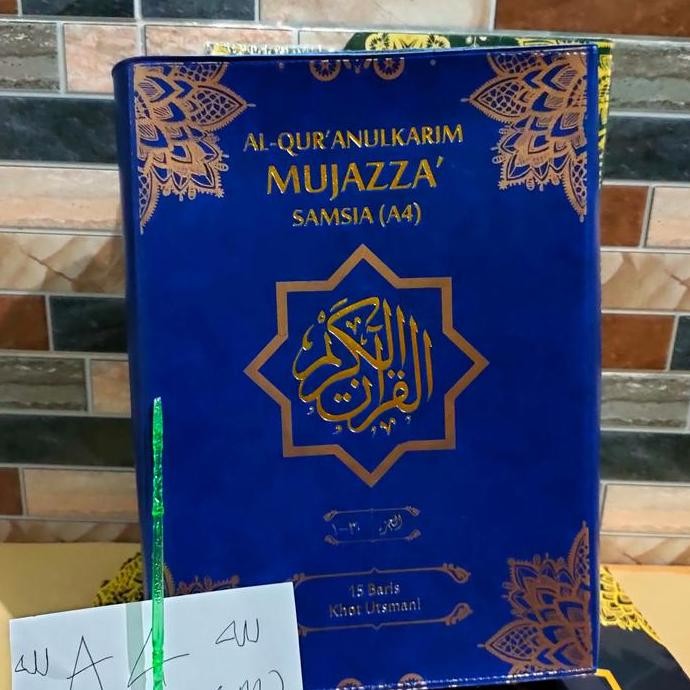 AL-QUR'ANULKARIM
MUJAZZA'
SAMSIA (A4)
القرآن الكريم
الجزء ١-٣٠
15 Baris
Khot Utsmani
A4